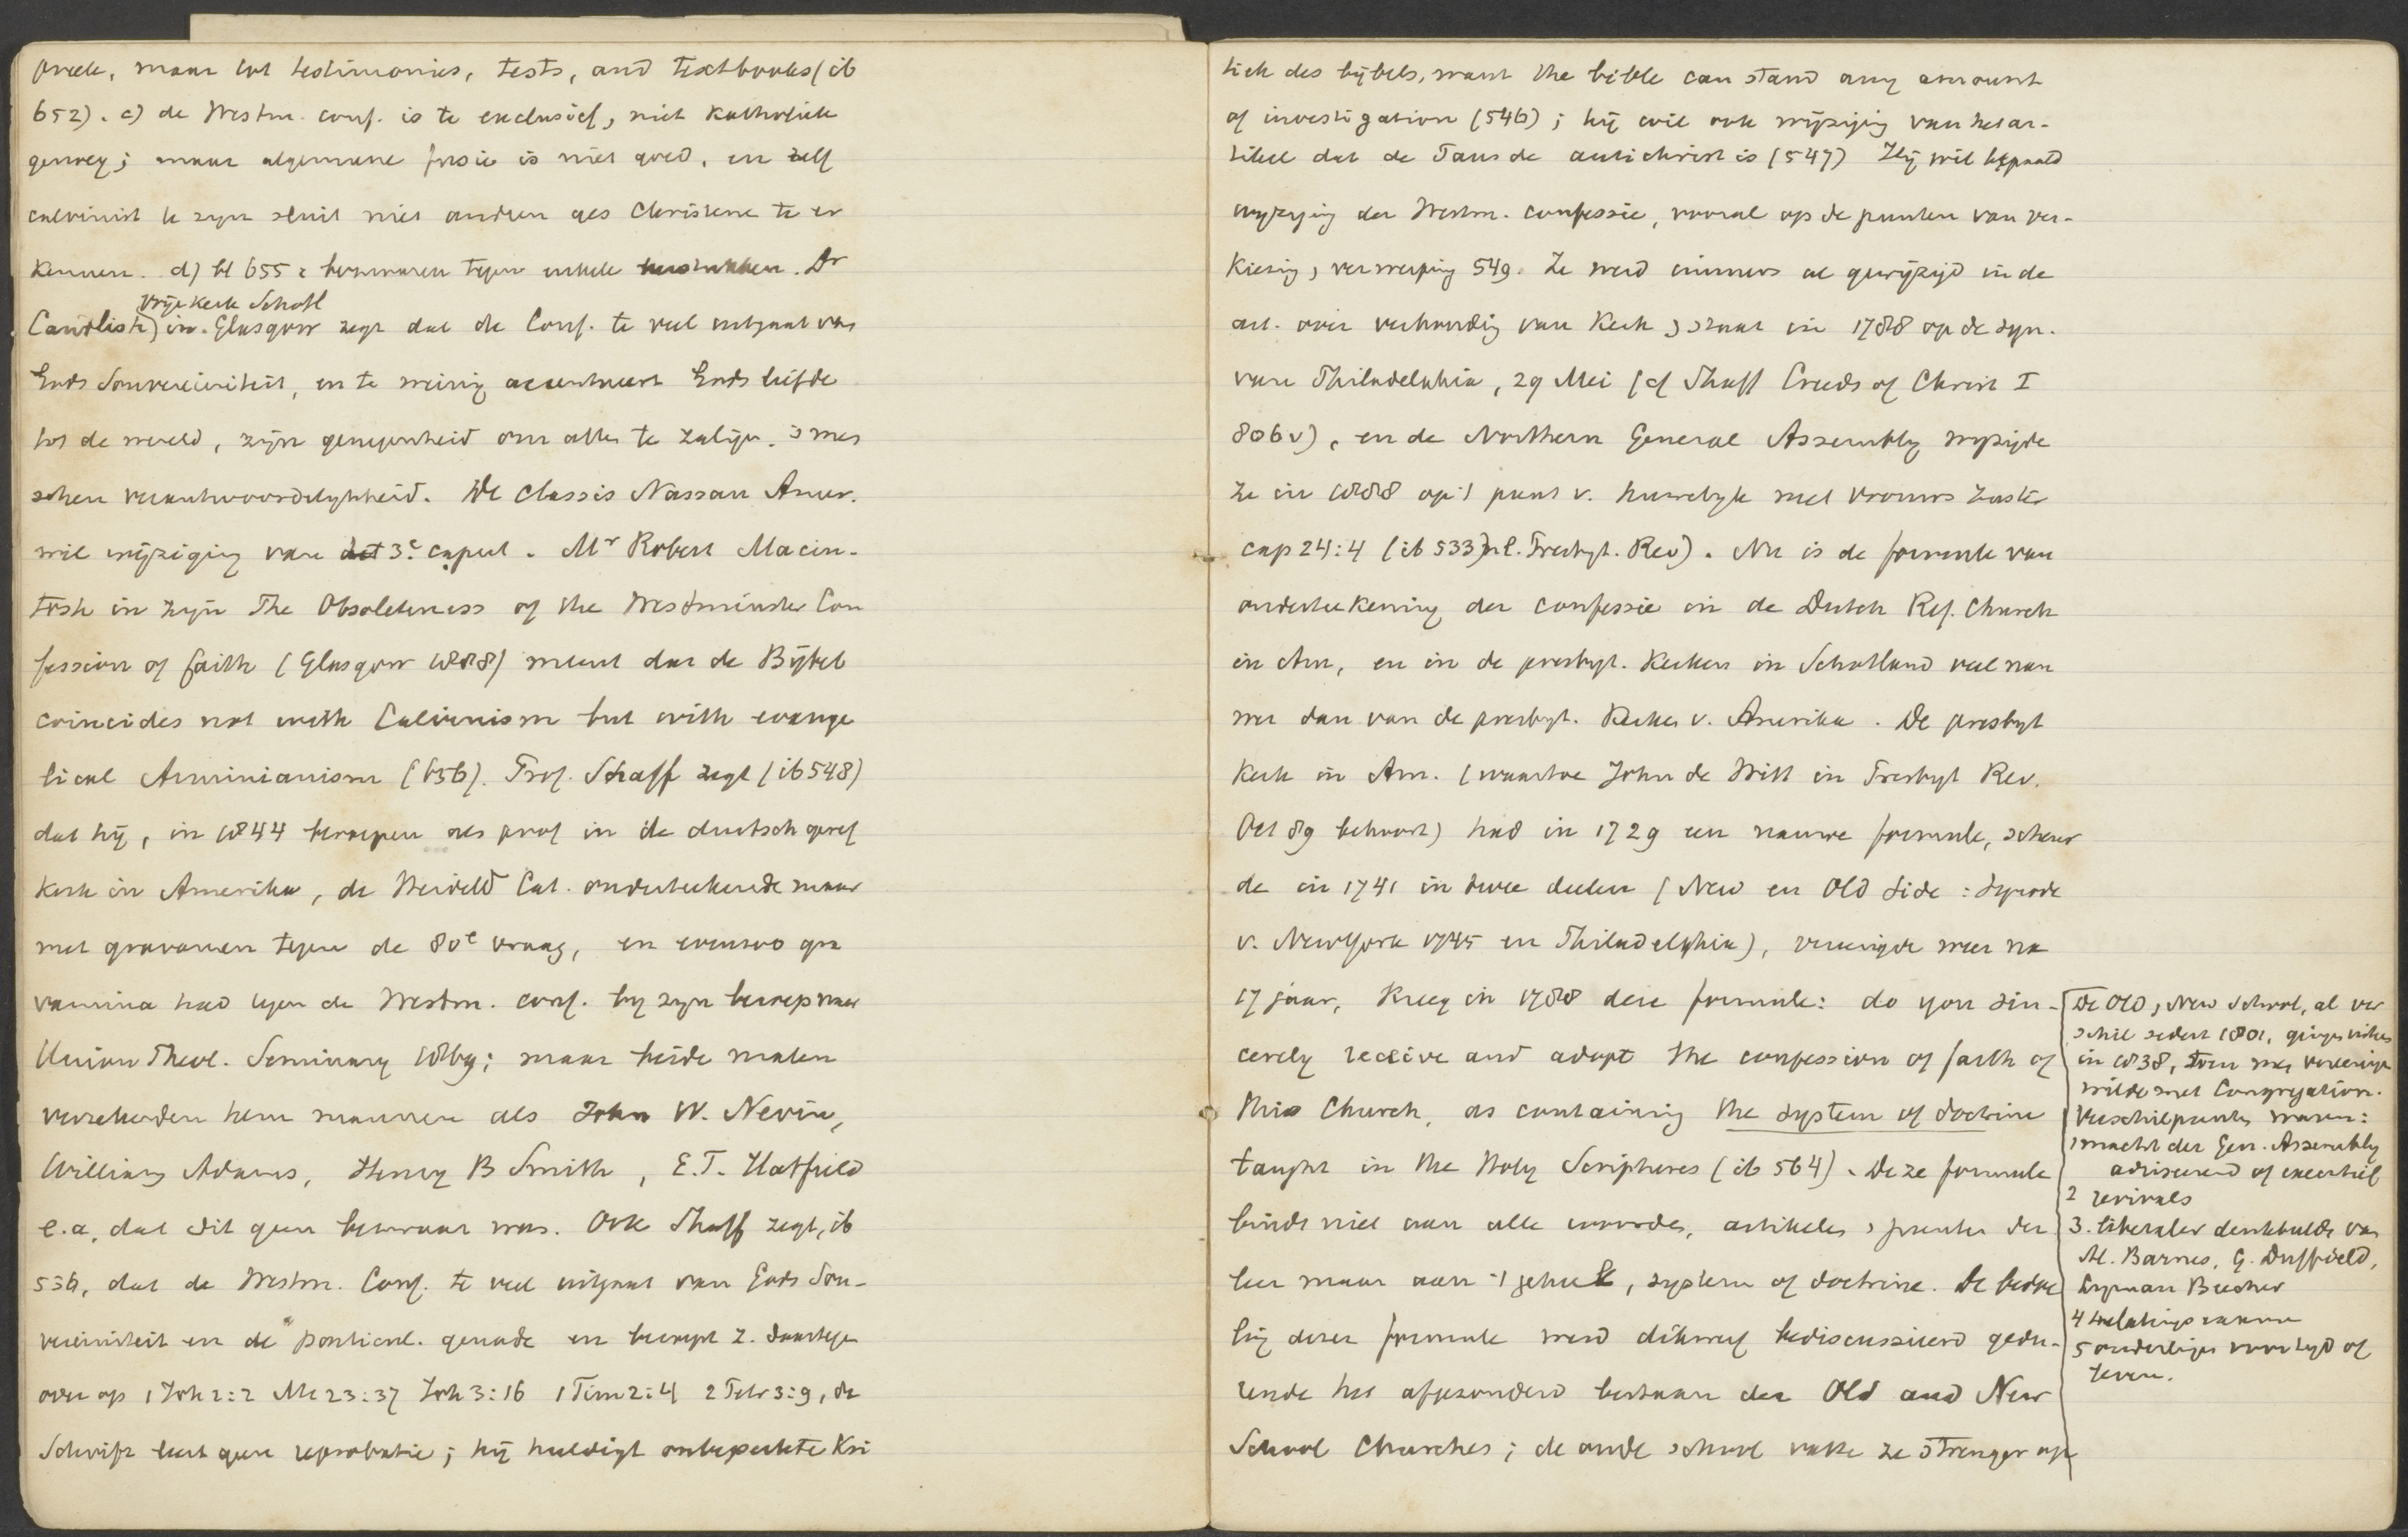 preek, maar tot testimonies, tests, and textbooks (ib
652). c) de Westm. conf. is te exclusief, niet Katholiek
genoeg; maar algemeene frase is niet goed, en zelf
calvinist te zijn sluit niet andren als Christene te er
kennen. d) bl 655 bezwaren tegen enkele Dr
vrije kerk Schotl
Candlish) in Glasgow zegt dat de Conf. te veel uitgaat van
Gods Souvereiniteit, en te weinig accentueert Gods liefde
tot de wereld, zijn genegenheid om alles te zaligen. & mens
schen verantwoordelykheid. De classis Nassau Amer.
wil wijziging van het 3e caput. Mr Robert Macin-
tosh in zijn The Obsoleteness of the Westminster Con
fession of faith (Glasgow 1888) meent dat de Bijbel
coincides not with Calvinism but with evange
lical Arminianism (656). Prof. Schaff zegt (ib 548)
dat hij, in 1844 beroepen als prof in de duitsch geref
kerk in Amerika, de Heidelb Cat. onderteekende maar
met gravamen tegen de 80e vraag, en evenzoo gra
vamina had tegen de Westm. conf. by zyn beroep naar
Union Theol. Seminary 1869; maar beide malen
verzekerden hem mannen als John W. Nevin,
William Adams, Henry B Smith, E.T. Hatfield
e.a. dat dit geen bezwaar was. Ook Shaff zegt, ib
536, dat de Westm. Conf. te veel uitgaat van Gods Sou-
vereiniteit en de particul. genade en beroept z. daartegen
over op 1 Joh 2:2 Mt 23:37 Joh 3:16 1 Tim 2:4 2 Petr 3:9, de
Schrift leert geen reprobatie; hij huldigt onbeperkte Kri
tiek des bijbels, want the bible can stand any amount
of investigation (546); hij wil ook wijziging van het ar-
tikel dat de Paus de antichrist is (547) Hij wil bepaald
wyziging der Westm. confessie, vooral op de punten van ver-
kiezing, verwerping 549. Ze werd immers al gewijzigd in de
art. over verhouding van Kerk & staat in 1788 op de syn.
van Philadelphia, 29 Mei (cf Shaff Creeds of Christ I
806v), en de Northern General Assembly wyzigde
ze in 1888 op 1 punt v. huwelyk met vrouws zuster
cap 24:4 (ib 533) nl. Presbyt. Rev). Nu is de formule van
onderteekening der confessie in de Dutch Ref. Church
in Am, en in de presbyt. Kerken in Schotland veel nau
wer dan van de presbyt. Kerken v. Amerika. De presbyt
Kerk in Am. (waartoe John de Witt in Presbyt Rev.
Oct 89 behoort) had in 1729 een nauwe formule, scheur
de in 1741 in twee deelen (New en Old Side: Synode
v. New York 1745 en Philadelphia), vereenigde weer na
17 jaar, kreeg in 1788 deze formule: do you sin-
cerely receive and adopt the confession of faith of
this Church, as containing the system of doctrine
taught in the Holy Scriptures (ib 564). Deze formule
bindt niet aan alle woorden, artikelen & punten der
leer maar aan 't geheel, system of doctrine. De bedoe
ling dezer formule werd dikwerf bediscussieerd gedu-
rende het afgezonderd bestaan der Old and New
School Churches; de oude school vatte ze strenger op
De Old & New School, al ver
schil sedert 1801, gingen uiteen
in 1838, toen men vereeniging
wilde met Congregation.
Verschilpunten waren:
1 macht der Gen. Assembly
adviseerend of executief
2 revivals
3. liberaler denkbeelden van
Al. Barnes, G. Duffield,
Lyman Beecher
4
5 voor tegen of